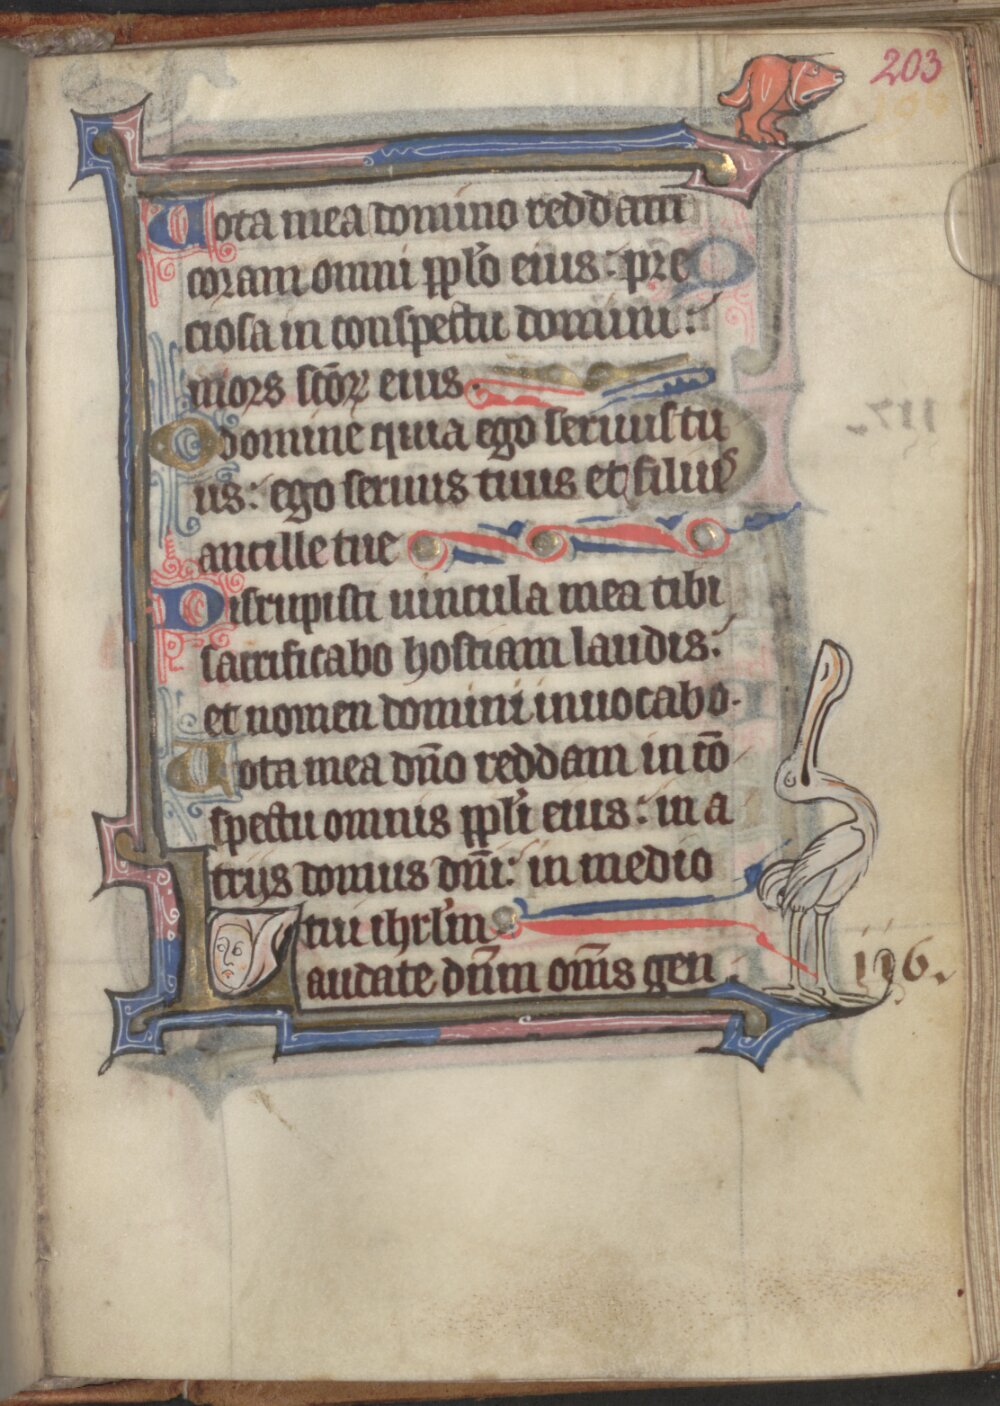 203
106
Uota mea domino reddam
coram omni pplo eius: pre
ciosa in conspectu domini:
mors scor eius.
O domine quia ego seruus tu
us: ego seruus tuus et filius
ancille tue
Dirupisti uincula mea tibi
sacrificabo hostiam laudis:
et nomen domini inuocabo.
Uota mea dño reddam in cō
spectu omnis ppli eius: in a
triis domus dñi: in medio
tui ihrlm
Laudate dñm oms gen
116.